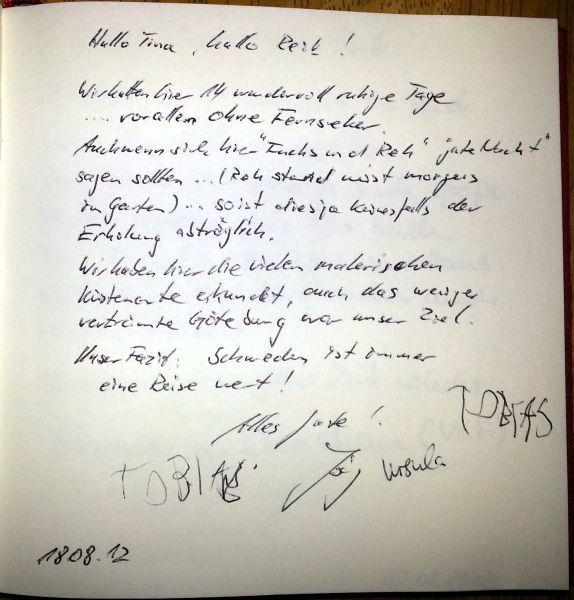 Hallo Tina, hallo Reik!
Wir hatten hier 14 wundervoll ruhige Tage
... vor allem ohne Fernseher.
Auch wenn sich hier "Fuchs und Reh" "gute Nacht"
sagen sollten ... (Reh stand meist morgens
im Garten) ... so ist dies ja keinesfalls der
Erholung abträglich.
Wir haben hier die vielen malerischen
Küstenorte erkundet, auch das weniger
verträumte Göteburg war unser Ziel.
Unser Fazit: Schweden ist immer
eine Reise wert!
Alles Gute!
TOBIAS
TOBIAS
Ursula
18.08.12